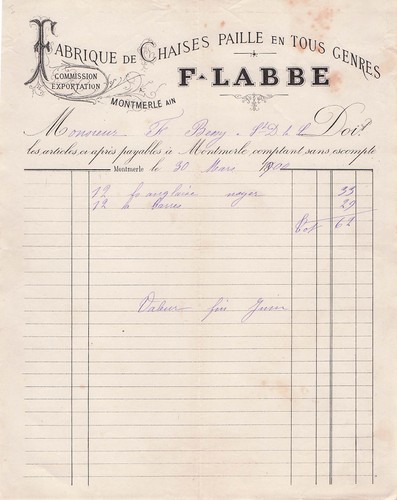 FABRIQUE DE CHAISES PAILLE EN TOUS GENRES
COMMISSION
EXPORTATION
F. LABBE
MONTMERLE AIN
Monsieur Doit
les articles ci après payables à Montmerle, comptant sans escompte
Montmerle le 30 Mars 1900
12 anglaise noyer 33
12 Barres 29
Tot 62
Valeur fin Juin